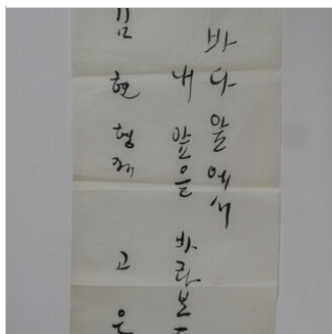 바다 앞에서
내 앞을 바라보
김현 형께 고은